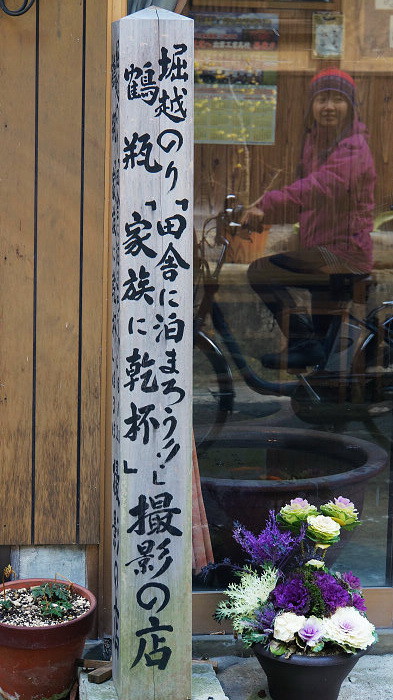 堀越のり「田舎に泊まろう!」撮影の店
鶴瓶「家族に乾杯」